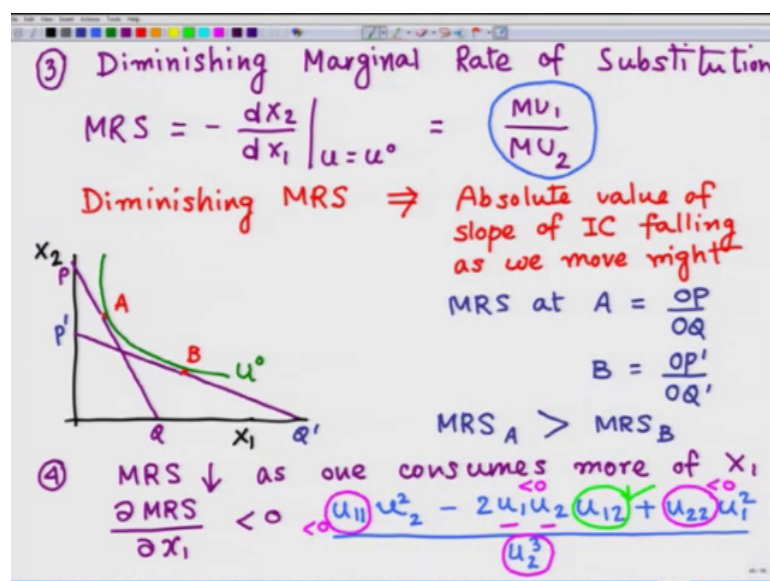 ③ Diminishing Marginal Rate of Substitution
MRS = - dx₂/dx₁ |u=u° = MU₁/MU₂
Diminishing MRS ⇒ Absolute value of
slope of IC falling
as we move right
X₂
P
A
P'
B
u°
Q
X₁
Q'
MRS at A = OP/OQ
B = OP'/OQ'
MRS_A > MRS_B
④ MRS ↓ as one consumes more of X₁
∂MRS/∂x₁ < 0
<0 <0 <0
u₁₁u₂² - 2u₁u₂u₁₂ + u₂₂u₁²
u₂³